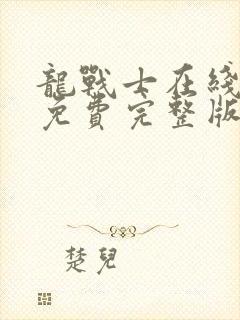 龍戰士在綫
免費完整版
楚兒